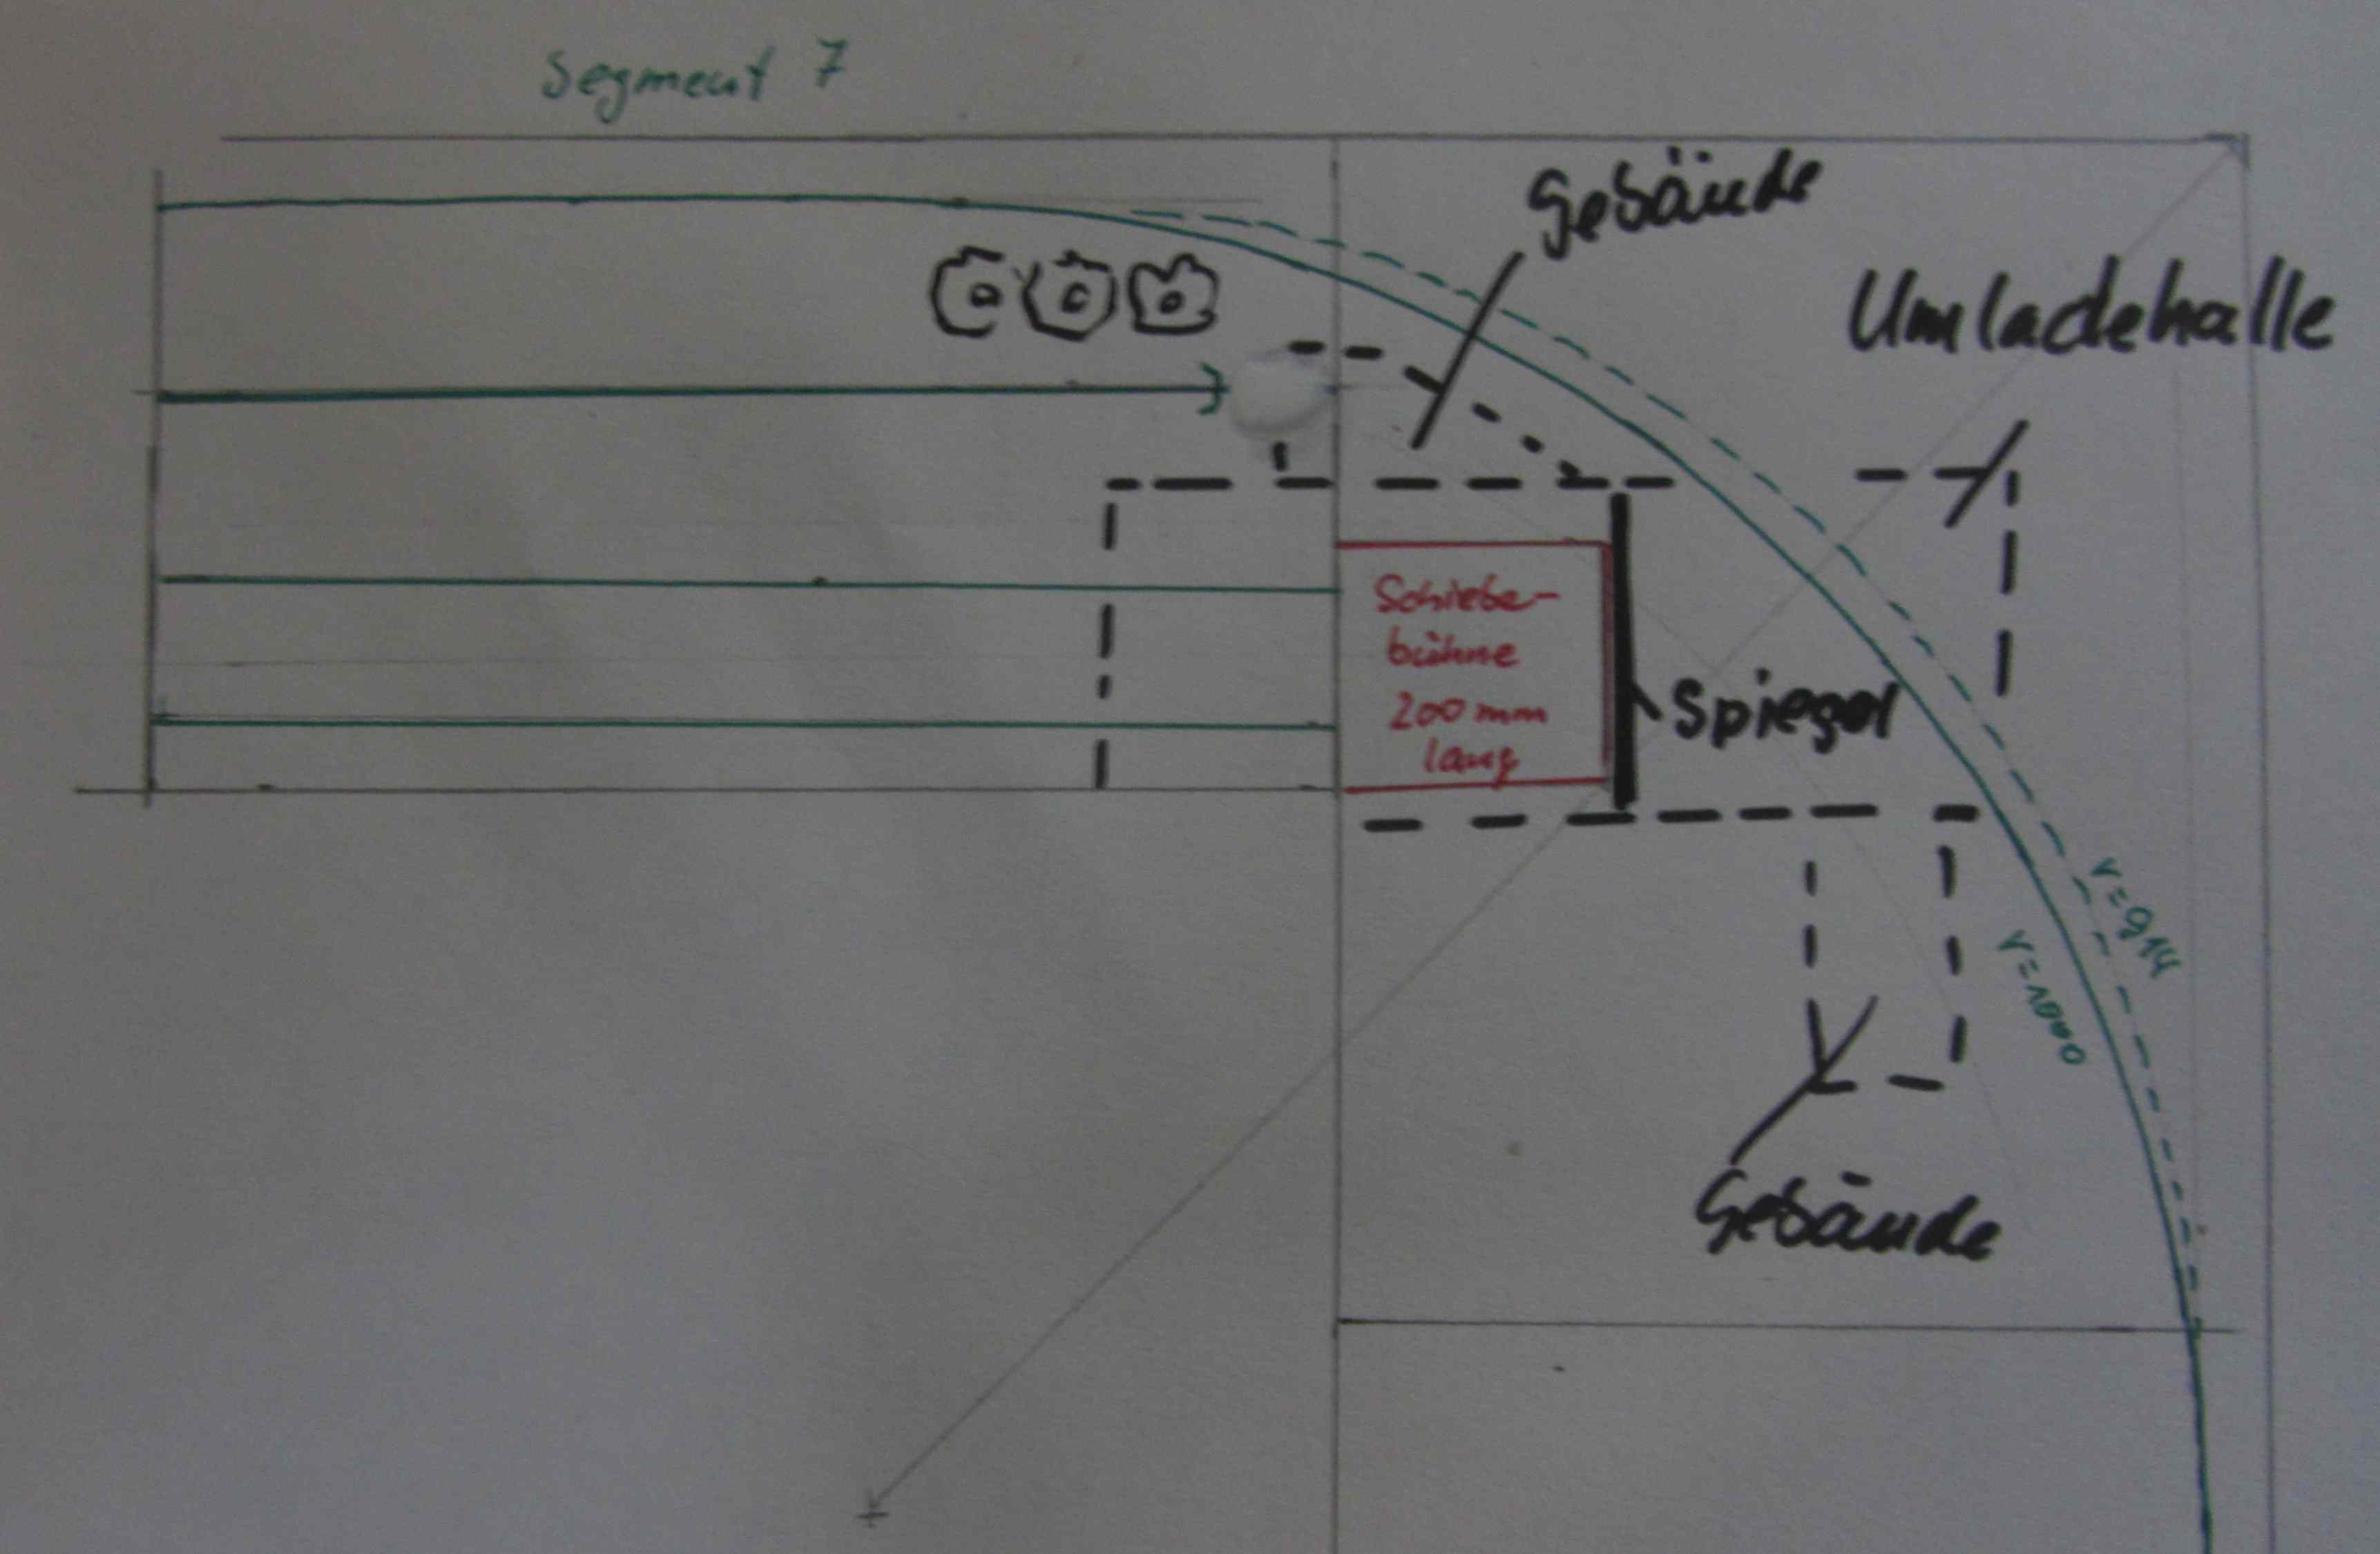 Segment 7
Gebäude
Umladehalle
Schiebe-
bühne
200 mm
lang
Spiegel
r=914
r=1000
Gebäude